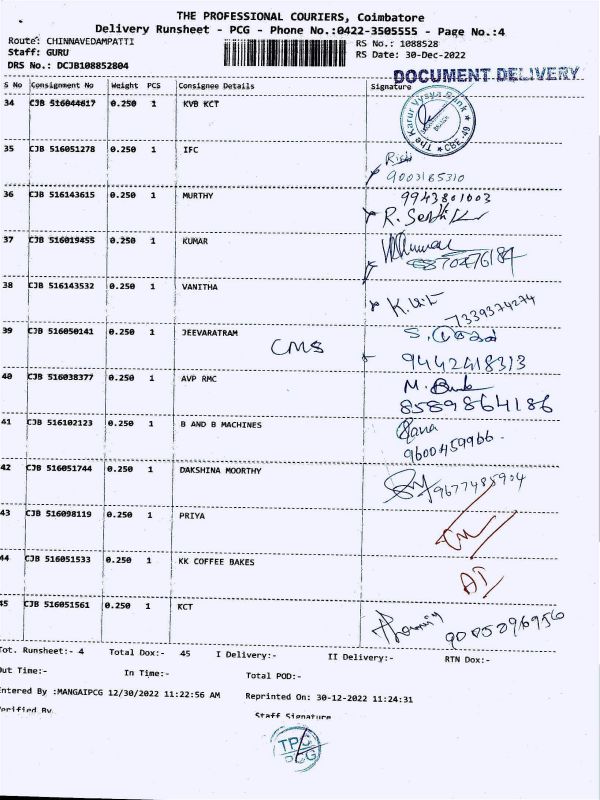 THE PROFESSIONAL COURIERS, Coimbatore
Delivery Runsheet - PCG - Phone No.:0422-3505555 - Page No.:4
Route: CHINNAVEDAMPATTI
Staff: GURU
DRS No.: DCJB108852804
RS No.: 1088528
RS Date: 30-Dec-2022
DOCUMENT DELIVERY
S No Consignment No Weight PCS Consignee Details Signature
34 CJB 516044617 0.250 1 KVB KCT
The Karur Vysya Bank CBE-49
35 CJB 516051278 0.250 1 IFC
9003165310
36 CJB 516143615 0.250 1 MURTHY 9943801003
37 CJB 516019455 0.250 1 KUMAR
38 CJB 516143532 0.250 1 VANITHA
7339374274
39 CJB 516050141 0.250 1 JEEVARATRAM
CMS
9442418313
40 CJB 516038377 0.250 1 AVP RMC
8589864186
41 CJB 516102123 0.250 1 B AND B MACHINES
9600459966
42 CJB 516051744 0.250 1 DAKSHINA MOORTHY
9677485904
43 CJB 516098119 0.250 1 PRIYA
44 CJB 516051533 0.250 1 KK COFFEE BAKES
45 CJB 516051561 0.250 1 KCT
Tot. Runsheet:- 4 Total Dox:- 45 I Delivery:- II Delivery:- RTN Dox:-
Out Time:- In Time:- Total POD:-
Entered By :MANGAIPCG 12/30/2022 11:22:56 AM Reprinted On: 30-12-2022 11:24:31
Verified By. Staff Signature
TPC
PCG